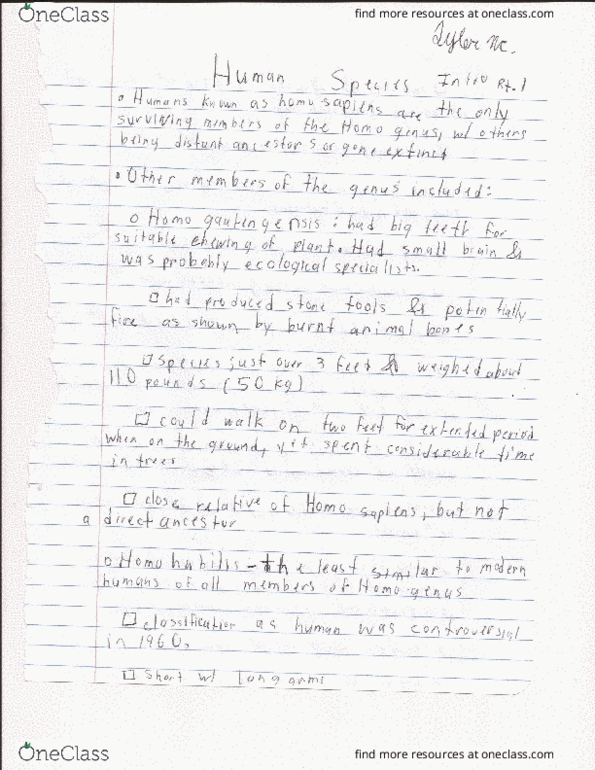 OneClass
find more resources at oneclass.com
Tyler Mc.
Human Species Intro Pt. 1
• Humans known as homo sapiens are the only
surviving members of the Homo genus, w/ others
being distant ancestors or gone extinct
• Other members of the genus included:
o Homo gautengensis: had big teeth for
suitable chewing of plant. Had small brain &
was probably ecological specialists.
□ had produced stone tools & potentially
fire as shown by burnt animal bones
□ Species just over 3 feet & weighed about
110 pounds (50 kg)
□ could walk on two feet for extended period
when on the ground, yet spent considerable time
in trees
□ close relative of Homo sapiens, but not
a direct ancestor
o Homo habilis - the least similar to modern
humans of all members of Homo genus
□ classification as human was controversial
in 1960.
□ short w/ long arms
OneClass
find more resources at oneclass.com